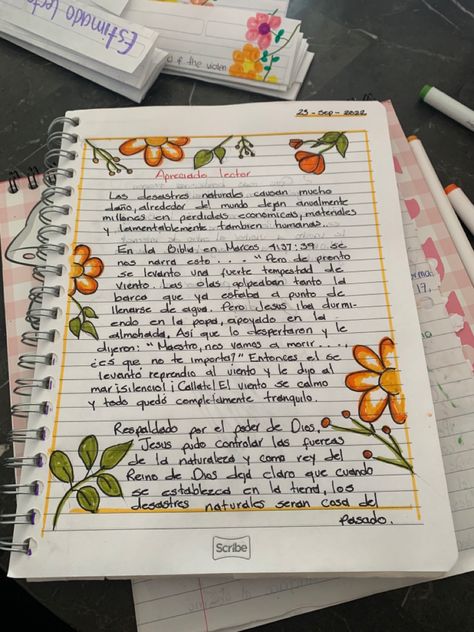 Estimado lecto
d of the violen
23 - Sep - 2022
Apreciado lector
Los desastres naturales causan mucho
daño, alrededor del mundo dejan anualmente
millones en perdidas economicas, materiales
y lamentablemente tambien humanas.
En la Biblia en Marcos 4:37:39 se
nos narra esto - "Pero de pronto
se levanto una fuerte tempestad de
viento. Las olas golpeaban tanto la
barca que ya estaba a punto de
llenarse de agua. Pero Jesus iba dormi-
endo en la popa, apoyado en la
almohada, Asi que lo despertaron y le
dijeron: "Maestro, nos vamos a morir . . . .,
¿es que no te importa?" Entonces el se
levantó reprendio al viento y le dijo al
mar ¡silencio! ¡Callate! El viento se calmo
y todo quedó completamente tranquilo.
Respaldado por el poder de Dios,
Jesus pudo controlar las fuerzas
de la naturaleza y como rey del
Reino de Dios deja claro que cuando
se establezca en la tierra, los
desastres naturales seran cosa del
pasado.
Scribe